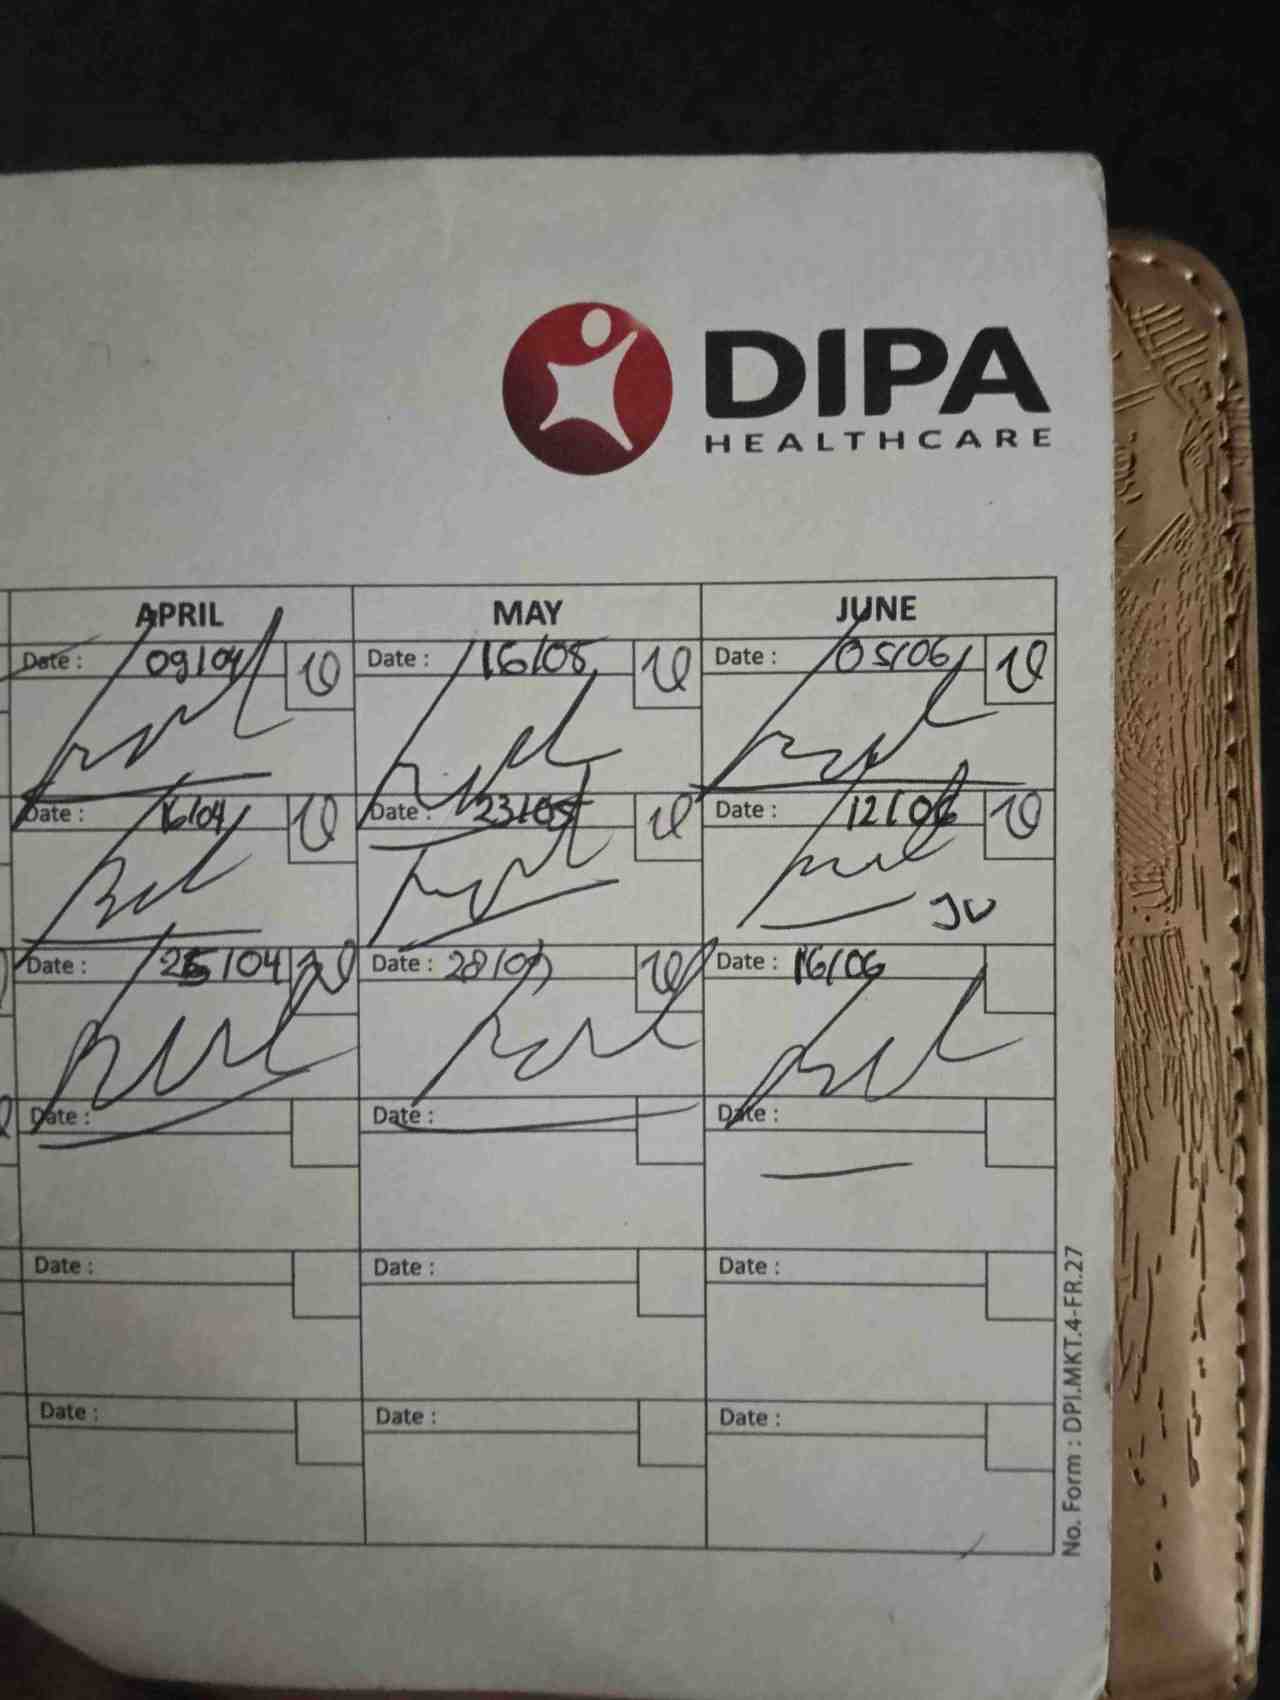 DIPA
HEALTHCARE
APRIL MAY JUNE
Date : 09/04 Date : 16/05 Date : 05/06
Date : 16/04 Date : 23/05 Date : 12/06
JV
Date : 25/04 Date : 28/05 Date : 16/06
Date : Date : Date :
Date : Date : Date :
Date : Date : Date :
No. Form : DPI.MKT.4-FR.27